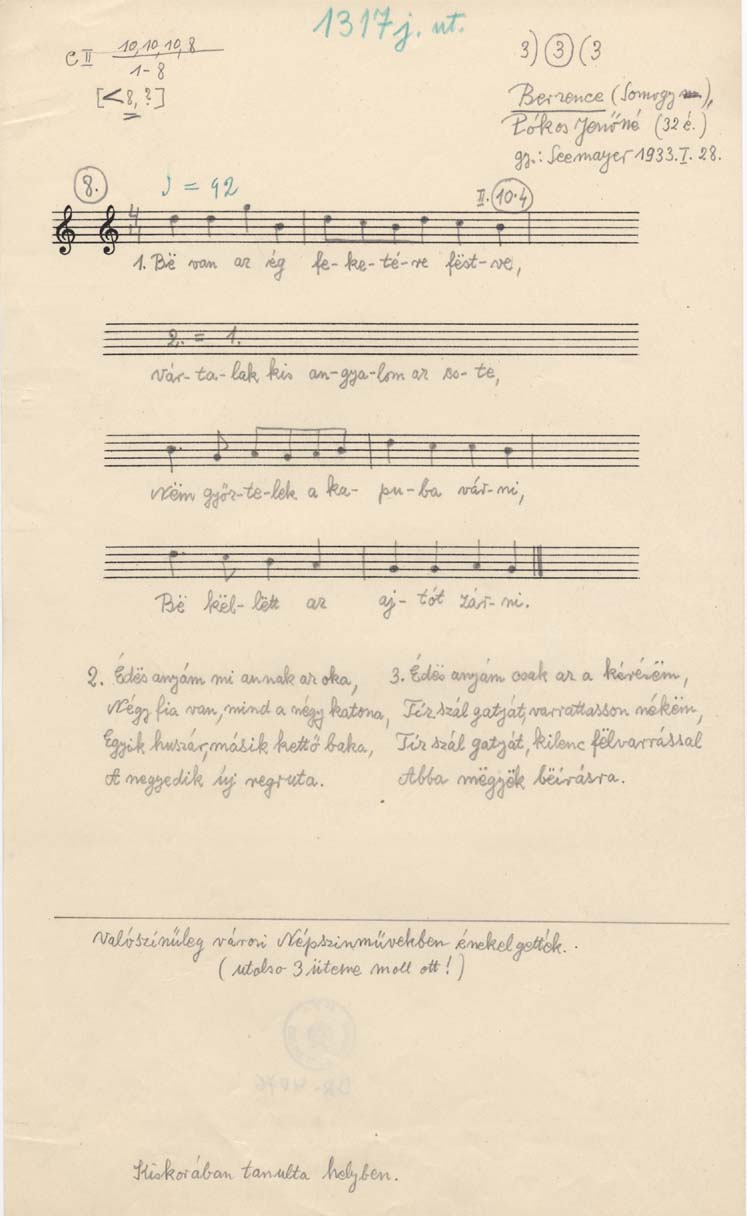 1317 j. ut.
C II 10,10,10,8
1-8
[< 8, ?]
3) (3) (3
Berzence (Somogy m),
Pókos Jenőné (32 é.)
gy.: Seemayer 1933. I. 28.
8.
♩ = 92
II. 10.4
4/4
1. Bë van az ég fe-ke-té-re fëst-ve,
2. = 1.
Vár-ta-lak kis an-gya-lom az es-te,
Nëm győz-te-lek a ka- pu-ba vár-ni,
Bë kël-lëtt az aj-tót zár-ni.
2. Édës anyám mi annak az oka,
Négy fia van, mind a négy katona,
Egyik huszár, másik kettő baka,
A negyedik új regruta.
3. Édës anyám csak az a kérésëm,
Tíz szál gatyját, varrattasson nékëm,
Tíz szál gatyját, kilenc félvarrással
Abba mëgyëk bëirásra.
Valószínűleg városi Népszinművekben énekelgették.
(utolso 3 üteme moll ott!)
Kiskorában tanulta helyben.